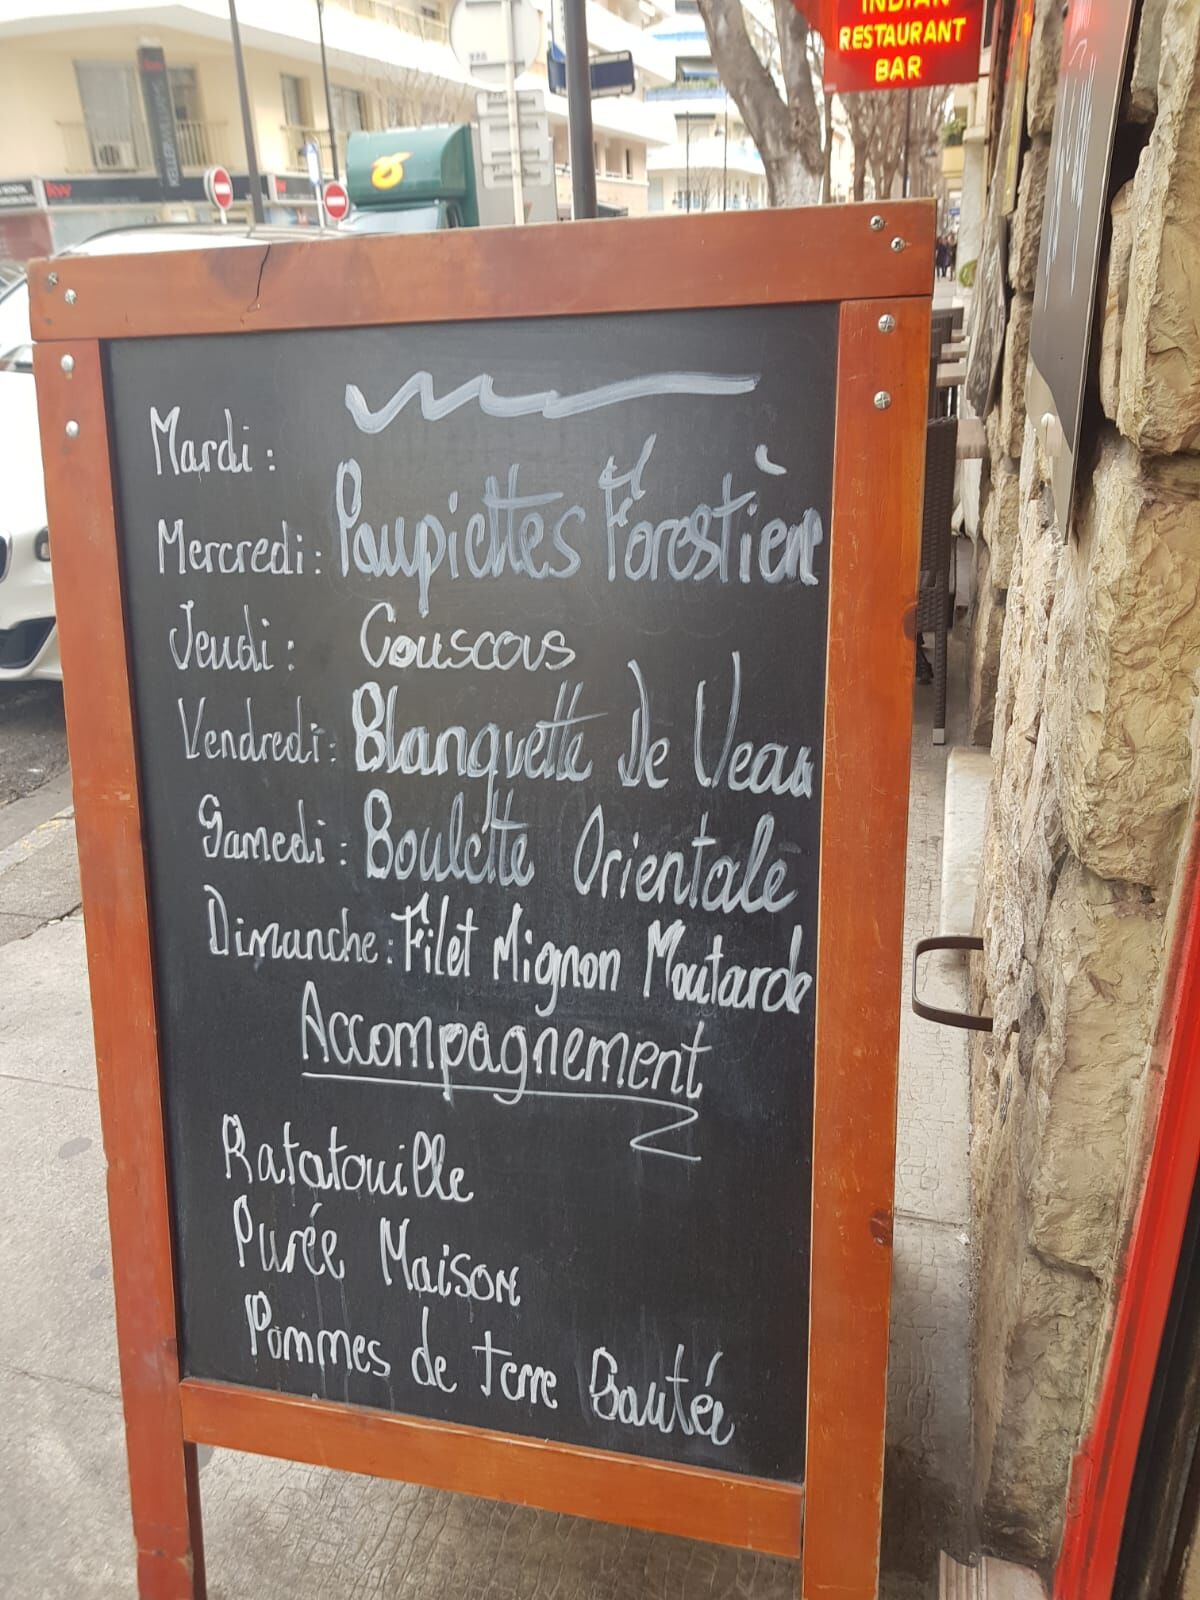 INDIAN
RESTAURANT
BAR
KELLERWILLIAMS
kw
Mardi :
Mercredi : Paupiettes Forestière
Jeudi : Couscous
Vendredi : Blanquette De Veau
Samedi : Boulette Orientale
Dimanche : Filet Mignon Moutarde
Accompagnement
Ratatouille
Purée Maison
Pommes de terre Sautée